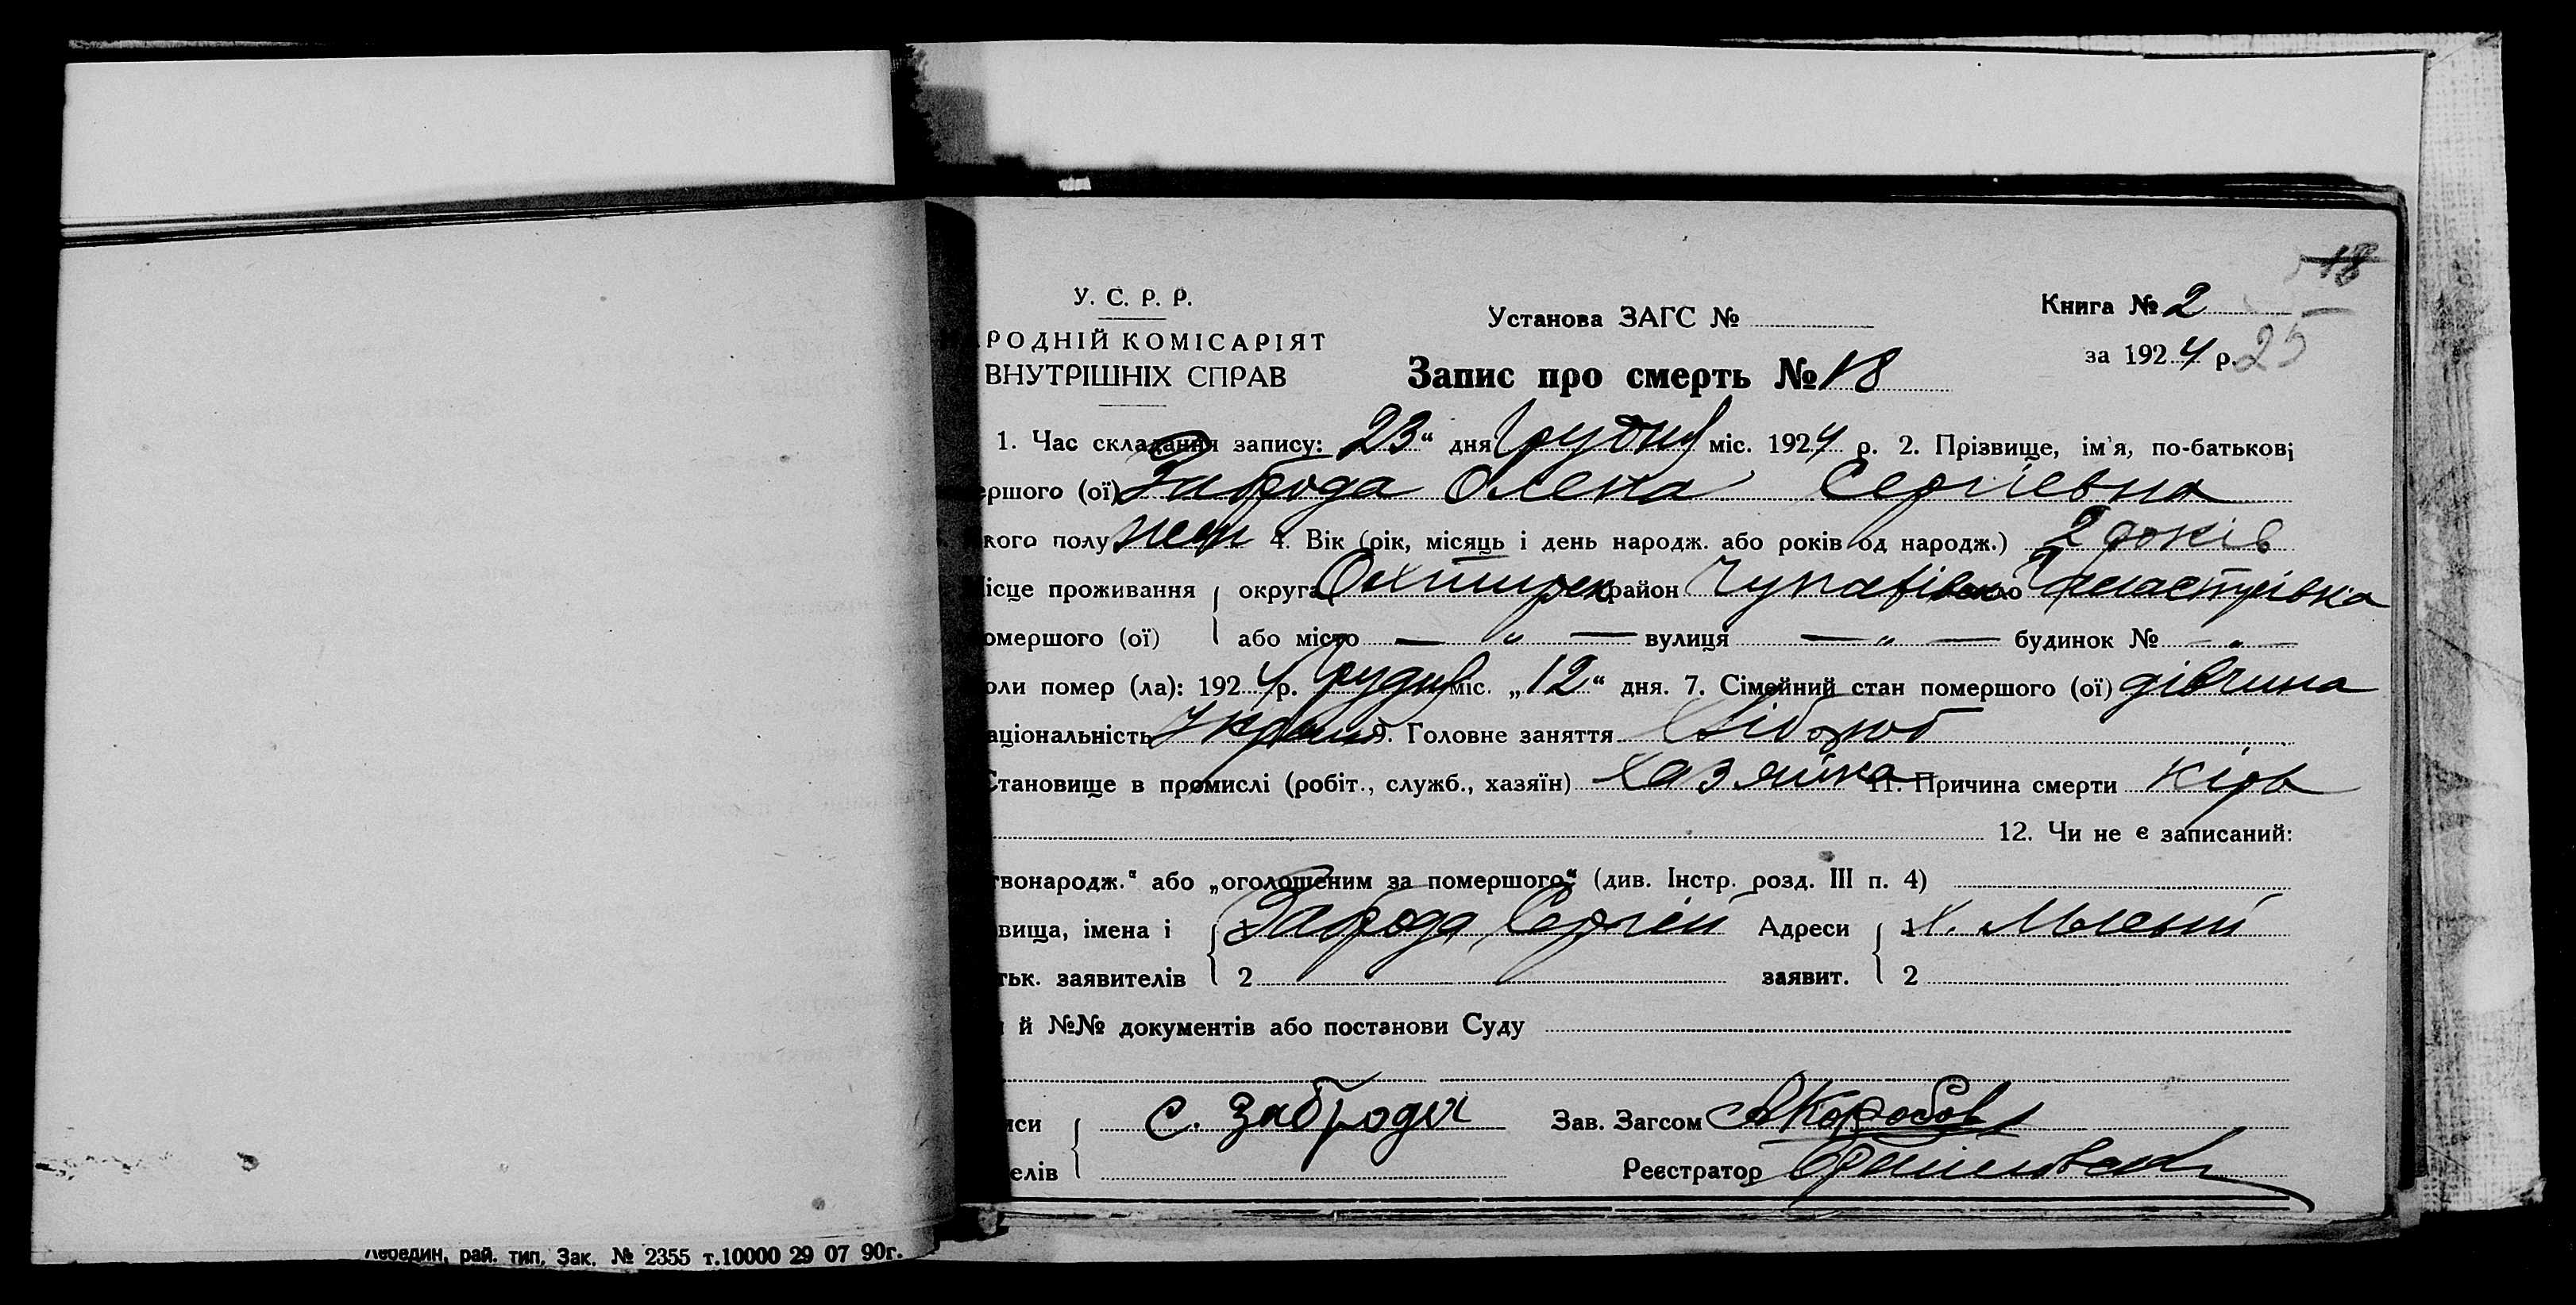 18
У. С. Р. Р.
Установа ЗАГС №
Книга № 2
РОДНІЙ КОМІСАРІЯТ
ВНУТРІШНІХ СПРАВ
за 1924 р.
25
Запис про смерть № 18
1. Час складання запису: 23“ дня Грудня міс. 1924 р. 2. Прізвище, ім'я, по-батькові
ершого (ої) Заброда Олена Сергіевна
кого полу жен 4. Вік (рік, місяць і день народж. або років од народж.) 2 років
ісце проживання округа Охтирськ район Чупахівськ
омершого (ої) або місто — „ — вулиця — „ — будинок № — „ —
оли помер (ла): 1924 р. Грудня міс. „12“ дня. 7. Сімейний стан помершого (ої) дівчина
аціональність Україн 9. Головне заняття Хлібороб
Становище в промислі (робіт., служб., хазяїн) хазяйка 11. Причина смерти кір
12. Чи не є записаний:
твонародж.“ або „оголошеним за помершого“ (див. Інстр. розд. III п. 4)
вища, імена і 1 Заброда Сергій Адреси 1 Х.
тьк. заявителів 2 заявит. 2
й №№ документів або постанови Суду
иси С. Заброда Зав. Загсом АКоробов
елів Реєстратор
Лебедин, рай. тип, Зак. № 2355 т.10000 29 07 90г.